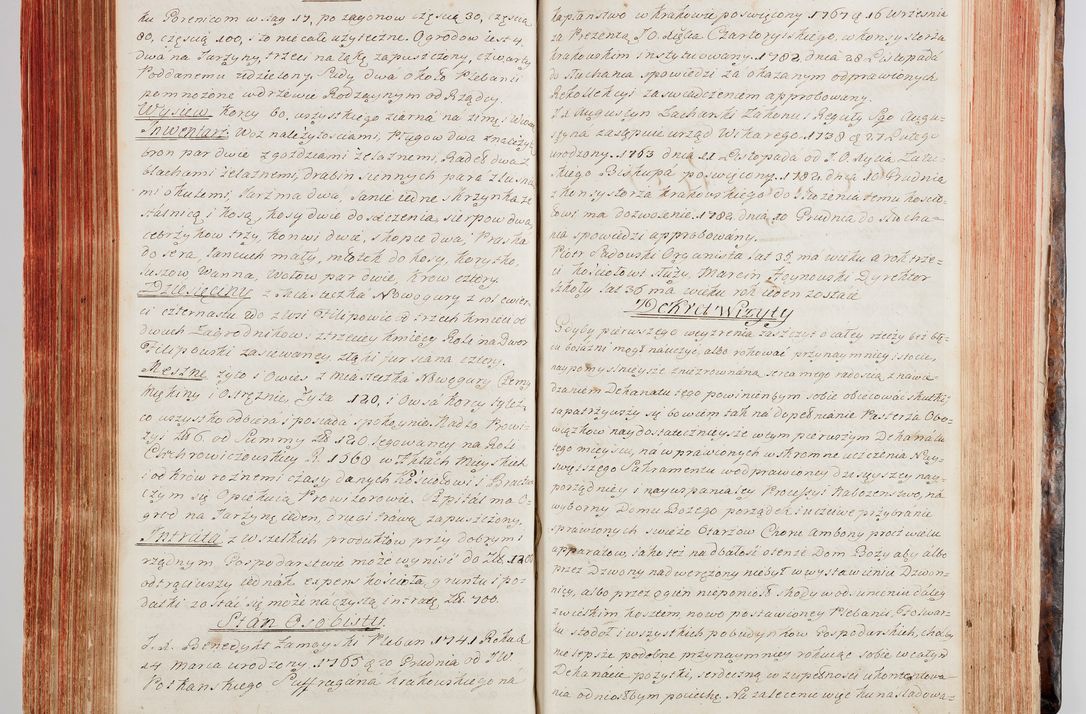 ku Porenicom w Sag 17, po zagonow częscią 30, częscią
80, częscią 100, są nie cale użyteczne. Ogrodow iest 4,
dwa na Jarzyny, trzeci na łąkę zapuszczony, czwarty
Poddanemu udzielony. Sady dwa około Plebanii
pomnożone w drzewie Rodzaynym od Rządcy.
Wysiew Korcy 60, wszystkiego ziarna na zimę,
Inwentarz. Woz należytościami, Pługow dwa z należyt
bron par dwie z goździami żelaznemi, Radeł dwa z
blachami żelaznemi, drabin siennych para z
mi okutemi, Jarzma dwa, Sanie iedne, skrzynka ze
siasnicą i kosą, kosy dwie do sieczenia, sierpow dwa,
cebrzykow trzy, konwi dwie, skopce dwa, Praska
do sera, Łancuch mały, młotek do kosy, korytko,
Wanna, Wołow par dwie, krow cztery.
Dziesięciny z Miasteczka Nowogury z rol cwier
ci czternastu. We wsi Filipowic od trzech kmieci od
dwoch Zagrodnikow, z trzeciey kmiecey Role na Dwor
Filipowski zasiewaney, z łąki fur siana cztery.
Meszne żyto i Owies z Miasteczka Nowogury Czerny
Miękiny i Ostrężnie, Żyta 120, i Owsa korcy tyleż,
co wszystko odbiera i posiada spokoynie. Nadto Prowi=
zyi Zł 6 od Summy Zł 120 legowaney na Roli
Chebrowiczowskiey R. 1568 w Aktach Mieyskich
i od krow roznemi czasy danych Kościołowi i Bractw
czym się Opiekuią Prowizorowie. Szpital ma O=
grod na Jarzynę ieden, drugi trawą zapuszczony.
Intrata z wszelkich produktow przy dobrym i
rządnym Gospodarstwie może wynieść do Zł. 1200
odtrąciwszy iednak expens kościoła, gruntu i po=
datki zostać się może na czystą intratę Zł. 700.
Stan Osobisty.
J. X. Benedykt Zamoyski Pleban 1741 Roku d.
24 Marca urodzony, 1765 d. 20 Grudnia od J W
Potkanskiego Suffragana krakowskiego na
kapłanstwo w krakowie poswięcony 1767 d. 16 Wrzesnia
za Prezentą J. O. Xięcia Czartoryskiego, w konsystorzu
krakowskim instytuowany. 1782 dnia 28 Listopada
do słuchania spowiedzi za okazanym odprawionych
Rekollekcyi zaswiadczeniem approbowany.
J. X. Augustyn Lachanski Zakonu Reguły Sgo Augu=
styna zastępuie urząd Wikarego. 1738 d. 27 Lutego
urodzony. 1763 dnia 11 Listopada od J. O. Xięcia Zału=
skiego Biskupa poswięcony. 1782 dnia 10 Grudnia
z konsystorza krakowskiego do służenia temu koscio=
łowi ma dozwolenie. 1782 dnia 10 Grudnia do słucha=
nia spowiedzi approbowany.
Piotr Sadowski Organista lat 35 ma wieku a rok trze=
ci kościołowi służy, Marcin Dyrektor
szkoły lat 36 ma wieku rok ieden zostaie
Dekret Wizyty
Gdyby pierwszego weyzrenia zaszczyt o całey rzeczy bez błę=
du boiaźni mogł nauczyć, albo rokować przynaymniey i stocie,
naypomyslnieysze z niezrownaną serca mego radością z nawie=
dzaniem Dekanatu tego powinienbym sobie obiecować skutki,
zapatrzywszy się bowiem tak na dopełnianie Pasterza Obo=
wiązkow naydostatecznieysze w tym pierwszym Dekanatu
tego mieyscu, na wprawionych w skromne uczczenia Nay=
swiętszego Sakramentu w odprawioney dzisieyszey nay=
porządniey i naywspanialey Processyi Nabożenstwo, na
wyborny Domu Bożego porządek i uczciwe przybranie
sprawionych swieżo Ołtarzow Chore ambony procz wielu
apparatow, iako też na dbałość o tenże Dom Boży aby albo
przez Dzwony nadwerężony niebył w wystawieniu Dzwon=
nicy, albo przez ogień nieponiosł szkody w odsunieniu daley
z wielkim kosztem nowo postawioney Plebanii, Folwar=
ku stodoł i wszystkich pobudynkow Gospodarskich, choćby
nie lepsze podobne przynaymniey rokuiąc sobie w całym
Dekanacie pożytki, serdeczną w zupełności ukontentowa=
nia odniosłbym pociechę. Na zalecenie więc ku nasladowa=